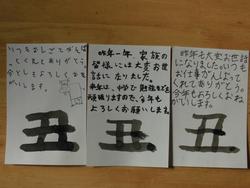 いつもおしごとがんば
ってくれてありがとう。
今年もよろしくおねが
いします。
丑
昨年一年、家族の
皆様には大変お世
話に在りました。
来年は、中学で勉強を
頑張りますので、今年も
よろしくお願いします
丑
昨年も大変お世話
になりました。いつも
お仕事がんばっ
てくれてありがとう。
今年もよろしくおね
がいします。
丑